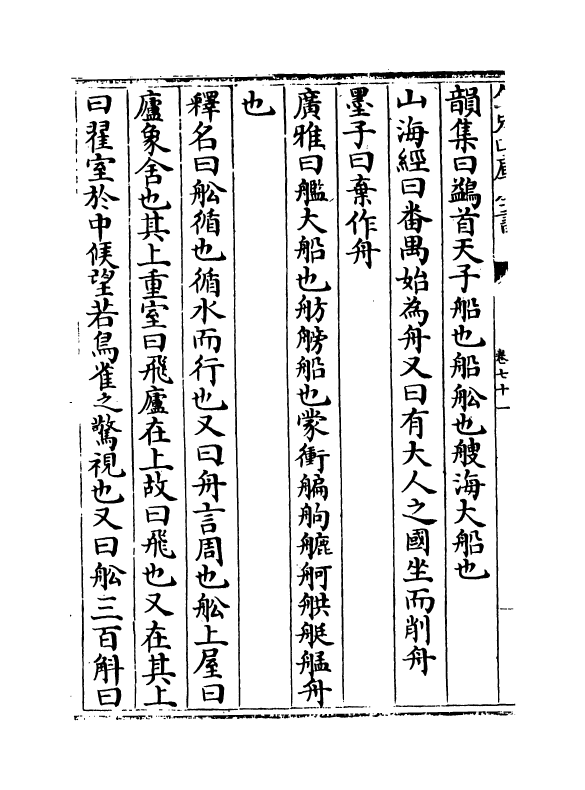 卷七十一
韻集曰鷁首天子船也船舩也艘海大船也
山海經曰番禺始為舟又曰有大人之國坐而削舟
墨子曰棄作舟
廣雅曰艦大船也舫艕船也䝉衝艑舸舟
也
釋名曰舩循也循水而行也又曰舟言周也舩上屋曰
廬象舍也其上重室曰飛廬在上故曰飛也又在其上
曰翟室於中候望若鳥雀之驚視也又曰舩三百斛曰